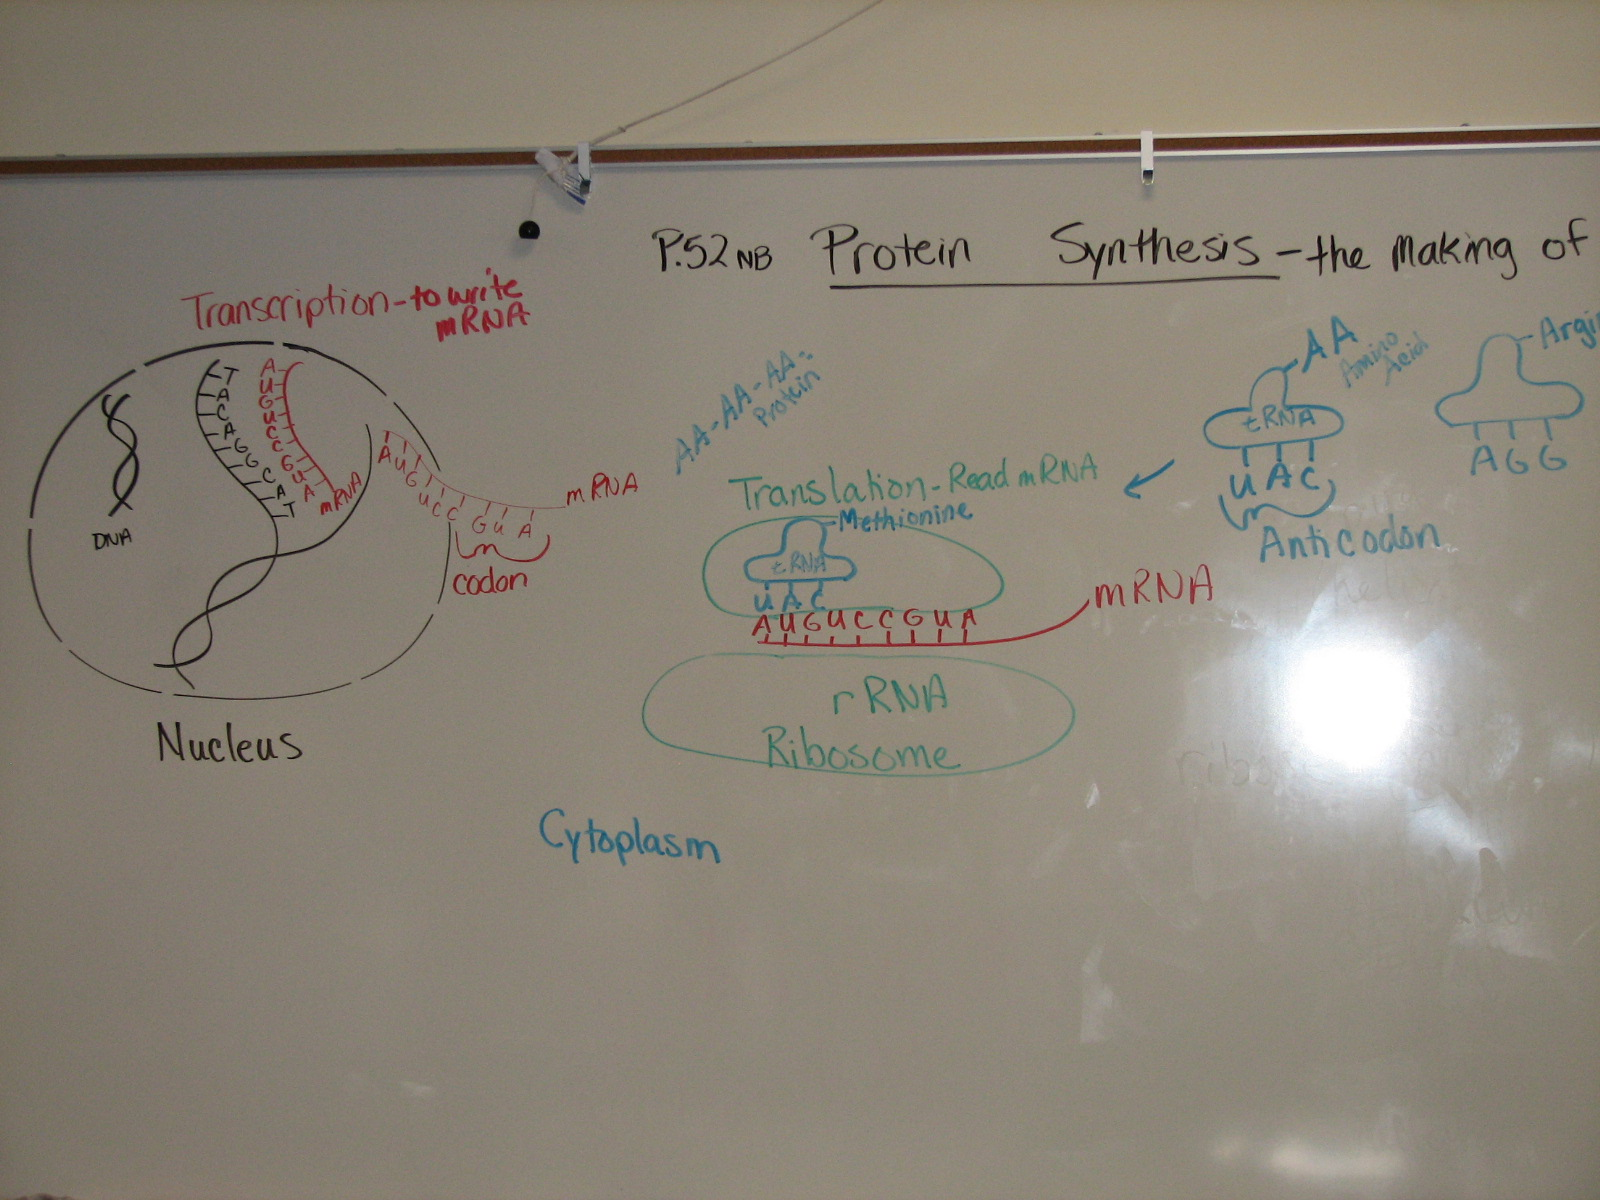 P.52 NB Protein Synthesis - the making of
Transcription - to write
mRNA
T
A
C
A
G
G
C
A
T
A
U
G
U
C
C
G
U
A
mRNA
DNA
A U G U C C G U A
mRNA
codon
Nucleus
AA-AA-AA-
Protein
Translation - Read mRNA
Methionine
tRNA
U A C
A U G U C C G U A
mRNA
rRNA
Ribosome
AA
Amino
Acid
tRNA
U A C
Anticodon
A G G
Cytoplasm